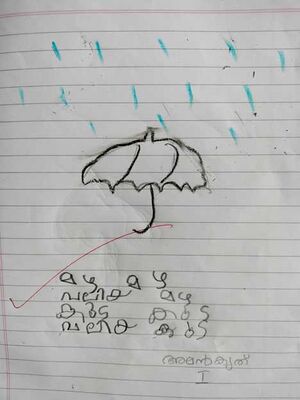 മഴ മഴ
വലിയ മഴ
കുട കുട
വലിയ കുട
I